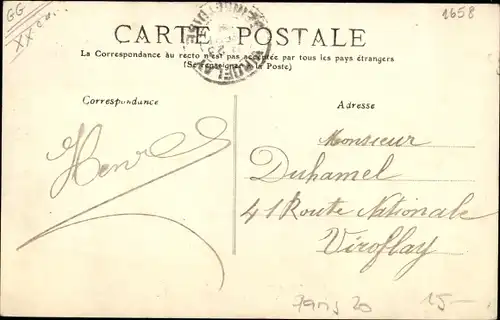 GG
XX em
1658
CARTE POSTALE
La Correspondance au recto n'est pas acceptée par tous les pays étrangers
(Se renseigner à la Poste)
Correspondance
Adresse
Monsieur
Duhamel
41 Route Nationale
Viroflay
Paris 20
15-